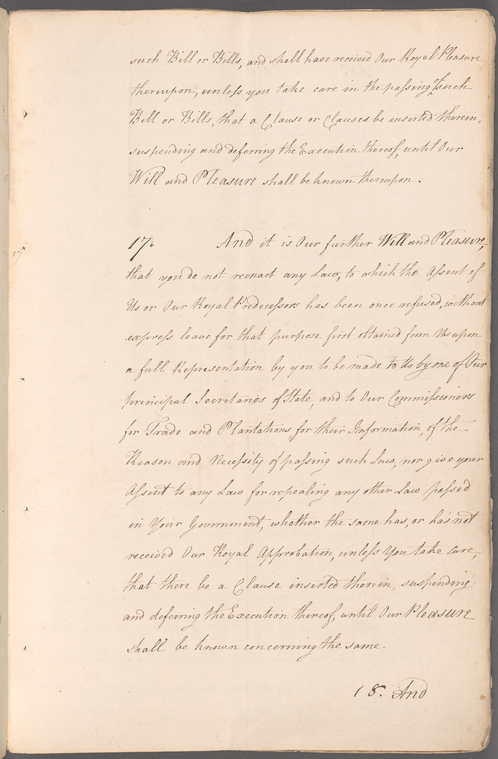 such Bill or Bills, and shall have received Our Royal Pleasure
thereupon, unless you take care in the passing of such
Bill or Bills, that a Clause or Clauses be inserted therein,
suspending and deferring the Execution thereof, until Our
Will and Pleasure shall be known thereupon.
17. And it is Our further Will and Pleasure,
that you do not reenact any Law, to which the Assent of
Us or Our Royal Predecessors has been once refused, without
express leave for that purpose first obtained from Us upon
a full Representation by you to be made to Us by one of Our
principal Secretaries of State, and to Our Commissioners
for Trade and Plantations for their Information, of the
Reason and Necessity of passing such Law, nor give your
Assent to any Law for repealing any other Law passed
in Your Government, whether the same has, or has not
received Our Royal Approbation, unless You take care,
that there be a Clause inserted therein, suspending
and deferring the Execution thereof, until Our Pleasure
shall be known concerning the same.
18. And